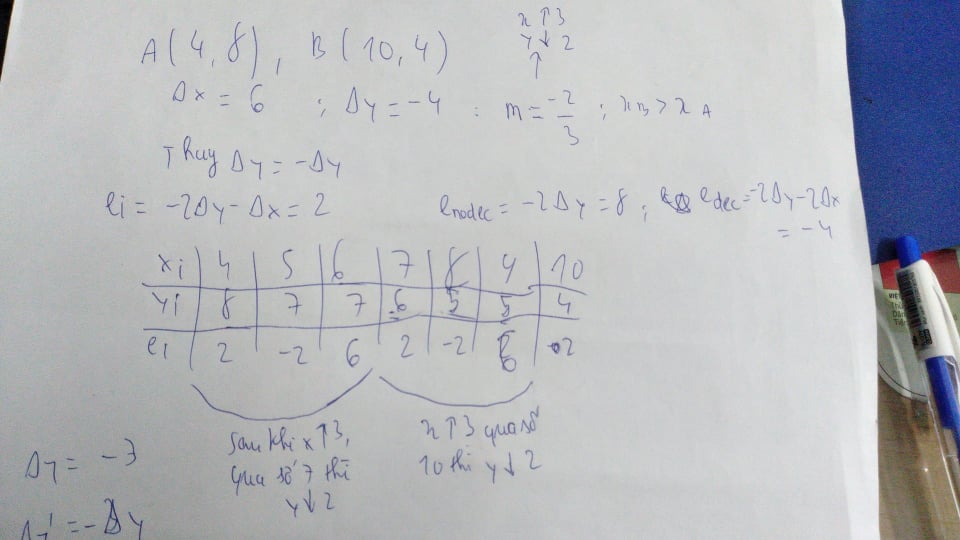 x ↑ 3
A(4,8), B(10,4)
y ↓ 2
↑
Δx = 6 ; Δy = -4 : m = -2/3 ; x_B > x_A
Thay Δy = -Δy
ei = -2Δy - Δx = 2
e_nodec = -2Δy = 8 ; e_dec = -2Δy - 2Δx
= -4
xi | 4 | 5 | 6 | 7 | 8 | 9 | 10
yi | 8 | 7 | 7 | 6 | 5 | 5 | 4
ei | 2 | -2 | 6 | 2 | -2 | 6 | 2
sau khi x ↑ 3,
qua số 7 thì
y ↓ 2
x ↑ 3 qua số
10 thì y ↓ 2
Δy = -3
Δy' = -Δy